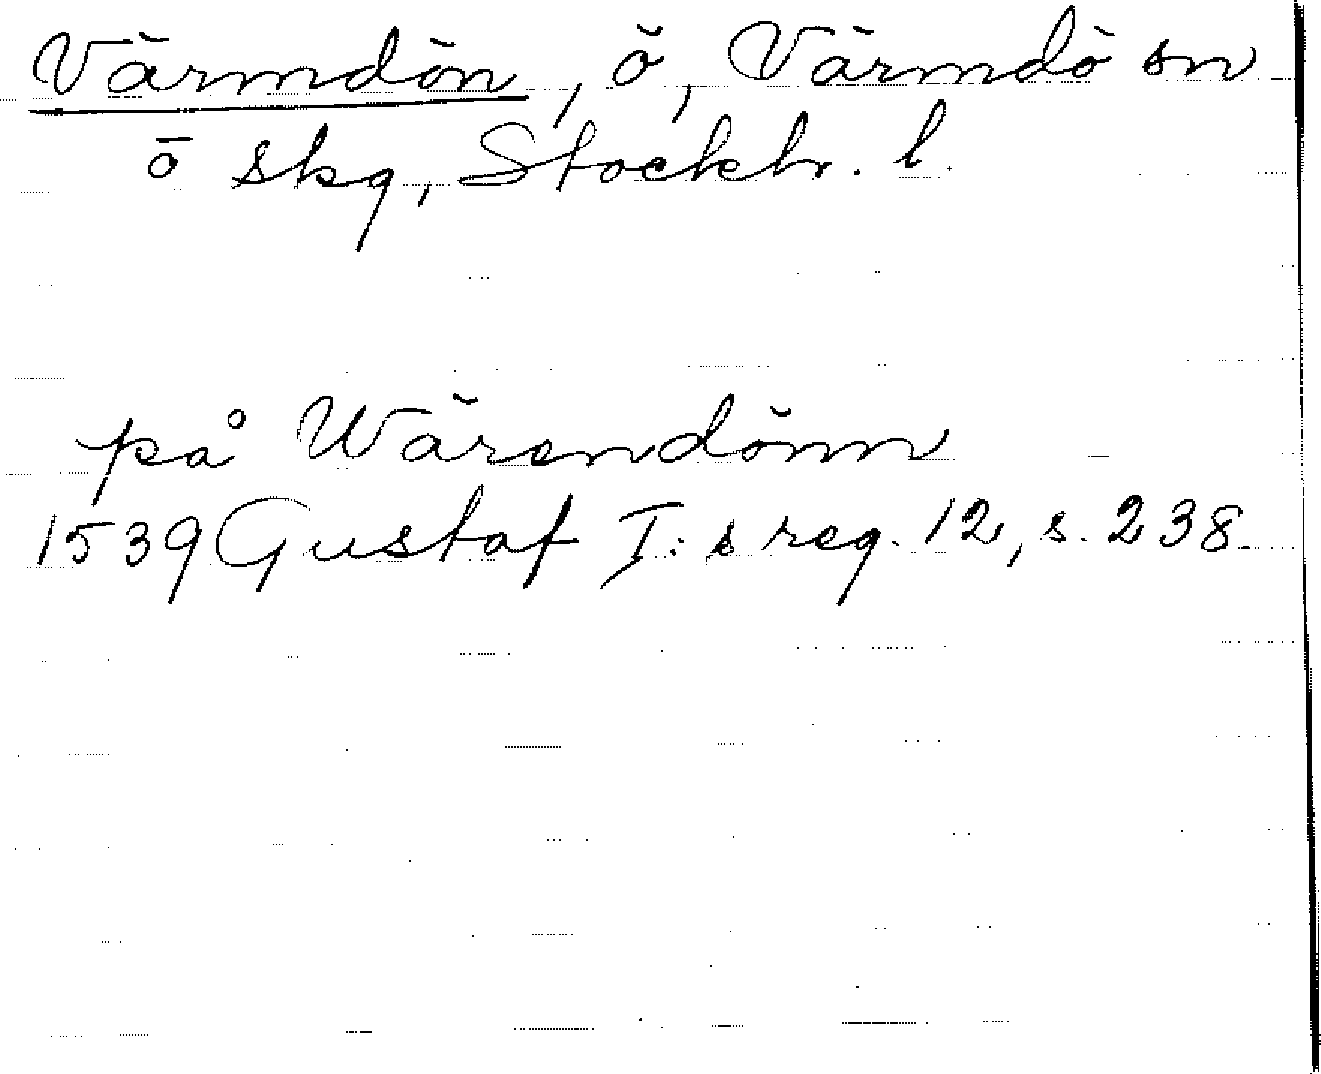 Värmdön, ö, Värmdö sn
ö skg, Stockh. l.
på Wärendönn
1539 Gustaf I:s reg. 12, s. 238.